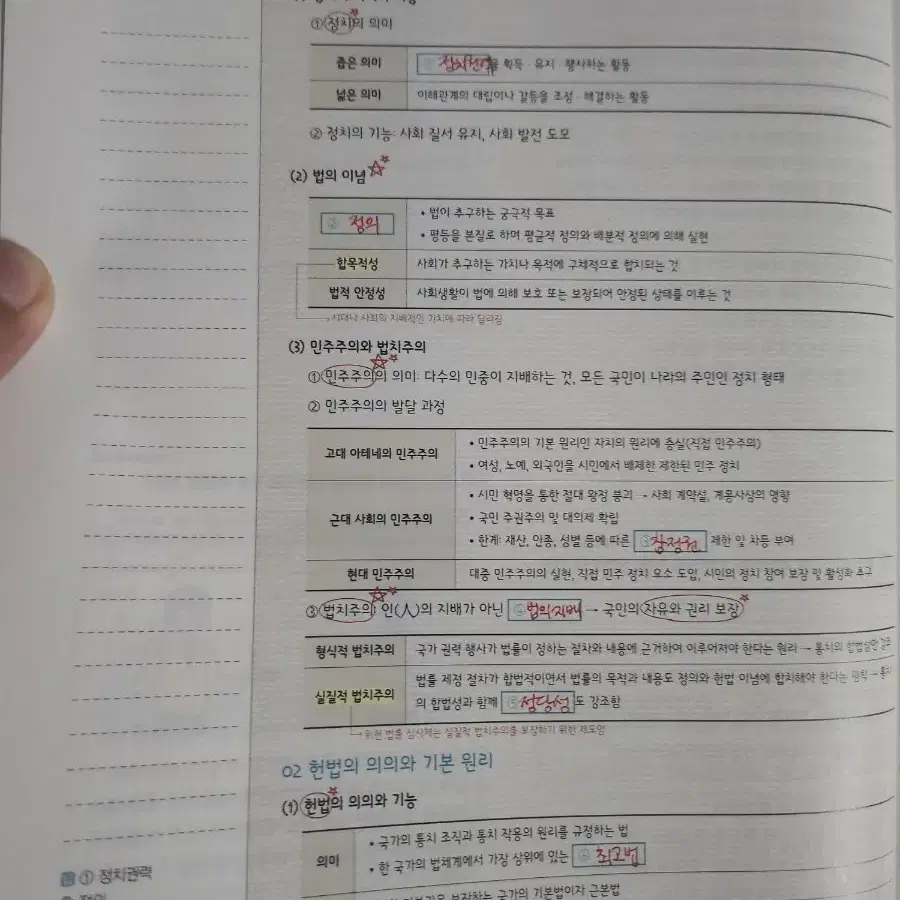 ① 정치의 의미
좁은 의미
① 정치권력을 획득 · 유지 · 행사하는 활동
넓은 의미
이해관계의 대립이나 갈등을 조정 · 해결하는 활동
② 정치의 기능: 사회 질서 유지, 사회 발전 도모
(2) 법의 이념
② 정의
• 법이 추구하는 궁극적 목표
• 평등을 본질로 하며 평균적 정의와 배분적 정의에 의해 실현
합목적성
사회가 추구하는 가치나 목적에 구체적으로 합치되는 것
법적 안정성
사회생활이 법에 의해 보호 또는 보장되어 안정된 상태를 이루는 것
시대나 사회의 지배적인 가치에 따라 달라짐
(3) 민주주의와 법치주의
① 민주주의의 의미: 다수의 민중이 지배하는 것, 모든 국민이 나라의 주인인 정치 형태
② 민주주의의 발달 과정
고대 아테네의 민주주의
• 민주주의의 기본 원리인 자치의 원리에 충실(직접 민주주의)
• 여성, 노예, 외국인을 시민에서 배제한 제한된 민주 정치
근대 사회의 민주주의
• 시민 혁명을 통한 절대 왕정 붕괴 → 사회 계약설, 계몽사상의 영향
• 국민 주권주의 및 대의제 확립
• 한계: 재산, 인종, 성별 등에 따른 ③ 참정권 제한 및 차등 부여
현대 민주주의
대중 민주주의의 실현, 직접 민주 정치 요소 도입, 시민의 정치 참여 보장 및 활성화 추구
③ 법치주의: 인(人)의 지배가 아닌 ④ 법의 지배 → 국민의 자유와 권리 보장
형식적 법치주의
국가 권력 행사가 법률이 정하는 절차와 내용에 근거하여 이루어져야 한다는 원리 → 통치의 합법성만 강조
실질적 법치주의
법률 제정 절차가 합법적이면서 법률의 목적과 내용도 정의와 헌법 이념에 합치해야 한다는 원칙 → 통치
의 합법성과 함께 ⑤ 정당성 도 강조함
위헌 법률 심사제는 실질적 법치주의를 보장하기 위한 제도임
02 헌법의 의의와 기본 원리
(1) 헌법의 의의와 기능
의미
• 국가의 통치 조직과 통치 작용의 원리를 규정하는 법
• 한 국가의 법체계에서 가장 상위에 있는 ⑥ 최고법
보장하는 국가의 기본법이자 근본법
답 ① 정치권력
② 정의